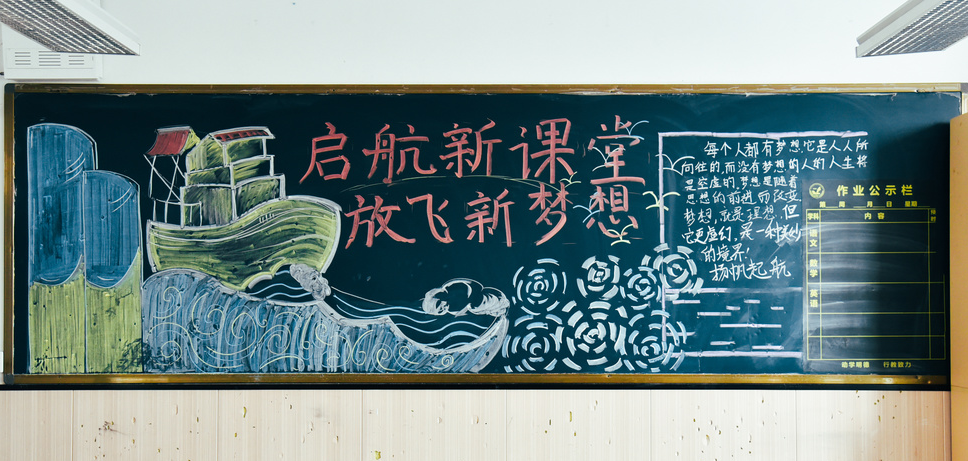 启航新课堂
放飞新梦想
每个人都有梦想,它是人人所
向往的,而没有梦想的人们人生将
是空虚的,梦想是随着
思想的前进而改变
梦想,就是理想,但
它更虚幻,是一种美妙
的境界!
扬帆起航
作业公示栏
第 周 月 日 星期
学科 内容
语文
数学
英语
勤学明德 行教致力